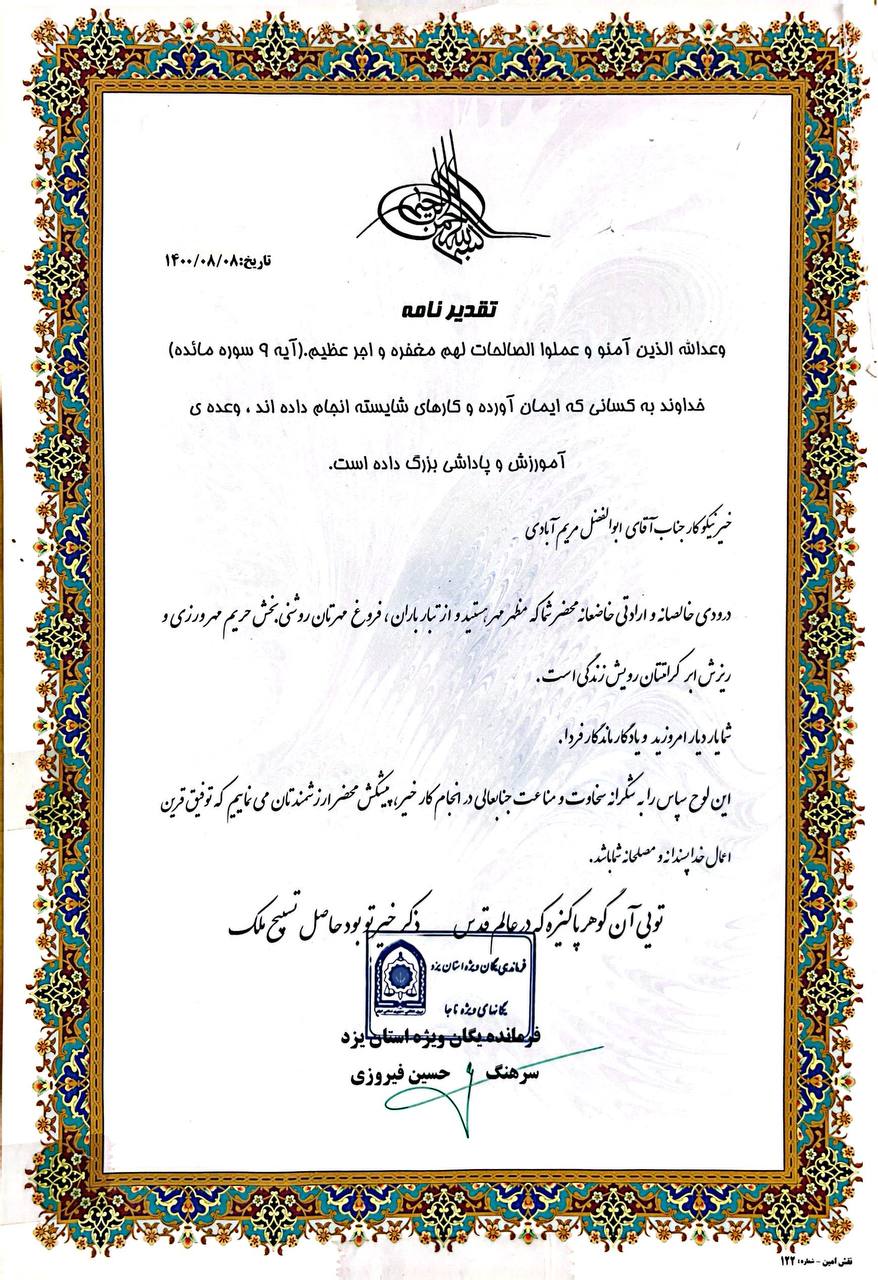 بسم الله الرحمن الرحیم
تاریخ:۱۴۰۰/۰۸/۰۸
تقدیر نامه
وعدالله الذین آمنو و عملوا الصالحات لهم مغفره و اجر عظیم.(آیه ۹ سوره مائده)
خداوند به کسانی که ایمان آورده و کارهای شایسته انجام داده اند ، وعده ی
آمورزش و پاداشی بزرگ داده است.
خیر نیکوکار جناب آقای ابوالفضل مریم آبادی
درودی خالصانه و ارادتی خاضعانه محضر شما که مظهر مهر هستید و از تبار باران ، فروغ مهرتان روشنی بخش حریم مهرورزی و
ریزش ابر کرامتتان رویش زندگی است.
شما یار دیار امروزید و یادگار ماندگار فردا.
این لوح سپاس را به شکرانه سخاوت و مناعت جنابعالی در انجام کار خیر، پیشکش محضر ارزشمندتان می نماییم که توفیق قرین
اعمال خداپسندانه و مصلحانه شما باشد.
تویی آن گوهر پاکیزه که در عالم قدس ذکر خیر تو بود حاصل تسبیح ملک
فرماندهی یگان ویژه استان یزد
یگانهای ویژه ناجا
فرمانده یگان ویژه استان یزد
سرهنگ حسین فیروزی
نقش امین - شماره: ۱۲۲